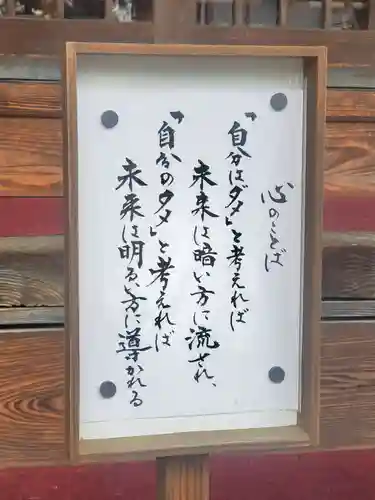 心のことば
「自分はダメ」と考えれば
未来は暗い方に流され、
「自分のタメ」と考えれば
未来は明るい方に導かれる